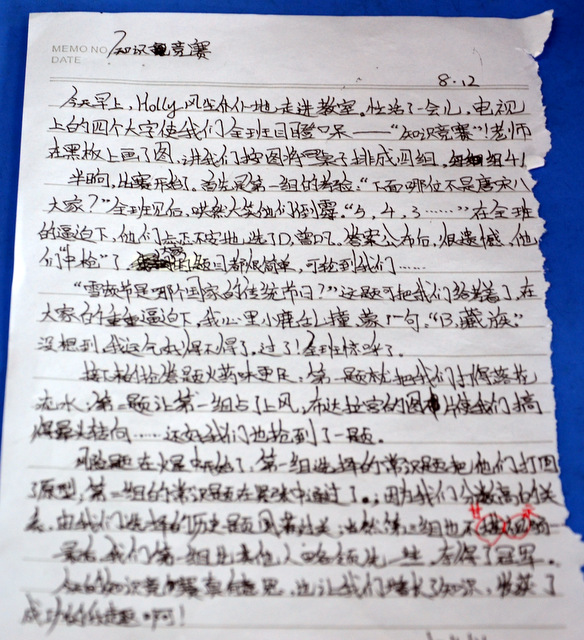 MEMO NO.
DATE
知识竞赛
8.12
今天早上，Holly风尘仆仆地走进教室。忙活了一会儿，电视
上的四个大字使我们全班目瞪口呆——“知识竞赛”！老师
在黑板上画了图，讲我们按图将桌子排成四组。组4人
半晌，比赛开始了。首先是第一组的考验：“下面哪位不是唐宋八
大家？”全班见后，哄然大笑他们的霉。“5，4，3……”在全班
的逼迫下，他们忐忑不安地选了D，曾巩。答案公布后，很遗憾，他
们“中枪”了。题目都很简单，可轮到我们……
“雪顿节是哪个国家的传统节日？”这题可把我们给难着了，在
大家的逼迫下，我心里小鹿乱撞，蒙了一句，“B，藏族。”
没想到，我运气好得不得了。过了！全班惊呆了。
接下来的抢答题火药味更足，第一题就把我们打得落花
流水，第二题让第一组占了上风，布达拉宫的图片使我们搞
得晕头转向……还好我们也抢到了一题。
风险题在火星中开始了，第一组选择的常识题把他们打回
了原型，第二组的常识题在果味中通过了。因为我们分数高的关
系，由我们选择的历史题闯着过关；当然第三组也不
最后，我们第一组比其他人略领先一些，夺得了冠军。
的知识竞赛真有意思，也让我们增长了知识，收获了
成功的乐趣啊！